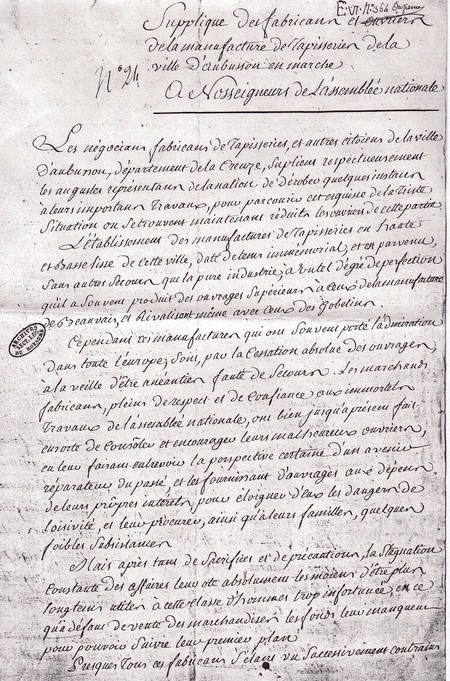 E.VI. N° 364
N° 24
Supplique des fabricans et ouvriers
de la manufacture de Tapisseries de la
ville d'aubusson en marche
A Nosseigneurs de L'assemblée nationale
Les négocians fabricans de Tapisseries, et autres citoiens de la ville
d'aubusson, département de la Creuze, Suplient respectueusement
les augustes représentans de la nation de dérober quelques instans
à leurs importans Travaux, pour parcourir cet esquisse de la Triste
Situation ou se trouvent maintenant réduits les ouvriers de cette partie
L'établissement des manufactures de Tapisseries en haute
et Basse lisse de cette ville, date de tems immémorial, et est parvenu,
Sans autres Secours que la pure industrie, à un tel dégré de perfection
qu'il a Souvent produit des ouvrages Supérieurs à Ceux de la manufacture
de Beauvais, et Rivalisent même avec Ceux des Gobelins.
Cependant ces manufactures qui ont Souvent porté l'admiration
dans toute l'europe, Sont, par la Cessation absolue des ouvrages,
à la veille d'être anéanties faute de Secours. Les marchands
fabricans, pleins de respect et de Confiance aux immortels
Travaux de l'assemblée nationale, ont bien jusqu'à présent fait
ensorte de Consoler et encourager leurs malheureux ouvriers,
en leur faisant entrevoir la perspective certaine d'un avenir
réparateur du passé, et les fournissant d'ouvrages aux dépens
de leurs propres intérets, pour eloigner d'eux les dangers de
l'oisiveté, et leur procurer, ainsi qu'à leurs familles, quelques
foibles Subsistances
Mais après tant de Sacrifices et de précautions, la Stagnation
Constante des affaires leur ote absolument les moiens d'être plus
longtems utiles à cette classe d'hommes trop infortunée, en ce
qu'à défaut de vente des marchandises les fonds leur manquent
pour pouvoir Suivre leur premier plan
Presque Tous ces fabricans S'étant vu Successivement contrains
ARCHIVES
NATIONALES